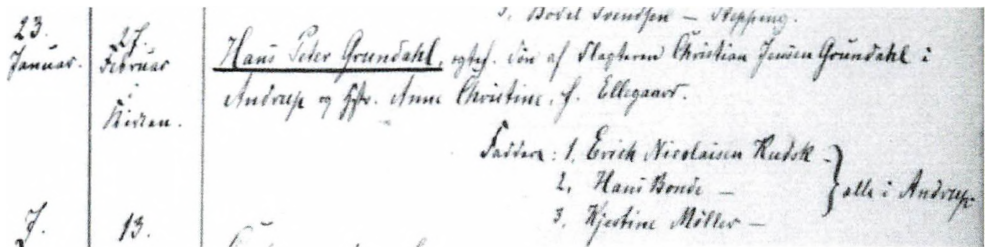 3. Bodil Svendsen – Stepping.
23. Januar. 27. Februar i Kirken.
Hans Peter Grundahl, ægtef. Søn af Slagteren Christian Jensen Grundahl i
Andrup og Hstr. Anne Christine, f. Ellegaard.
Faddere: 1, Erich Nicolaisen Kudsk –
2, Hans Bonde – alle i Andrup
3, Kjestine Möller –
7. 13.